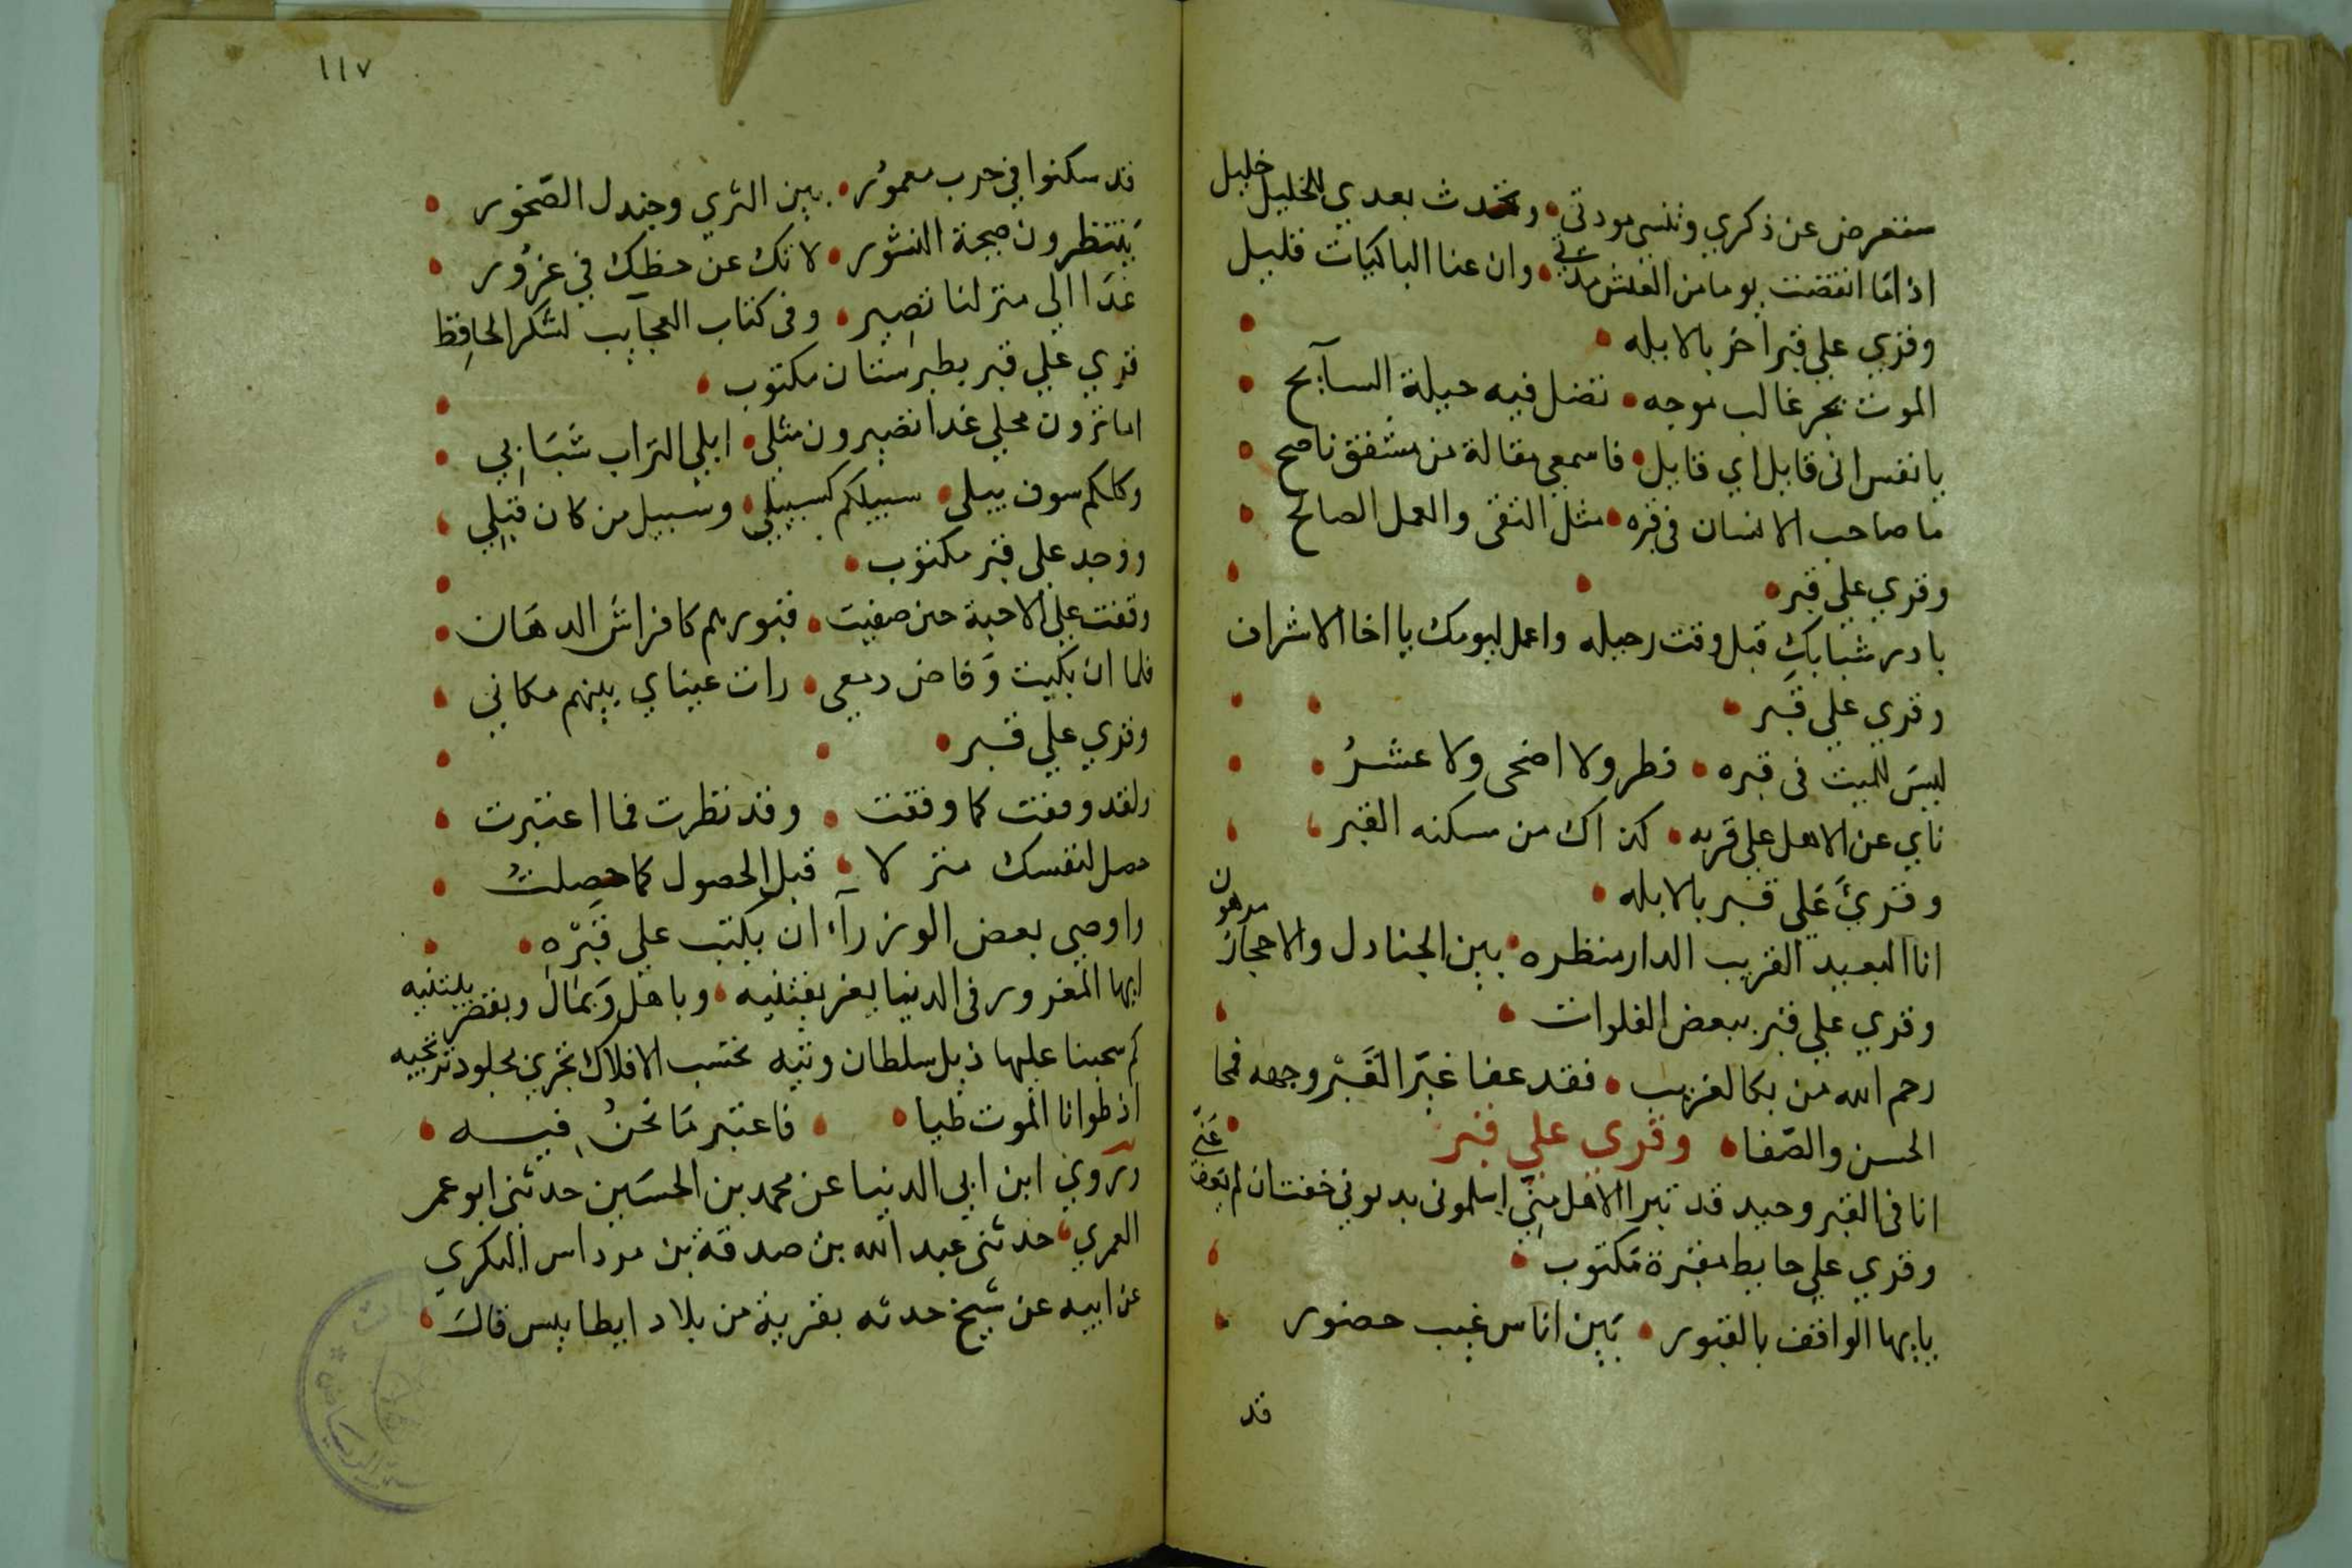 ستعرض عن ذكري وتنسي مودتي • وتحدث بعدي للخليل خليل
اذا ما انقضت يوما من العيش مدتي • وان عنا الباكيات قليل
وقري علي قبر آخر بالابله •
الموت بحر غالب موجه • تضل فيه حيلة السآبح
يا نفس اني قايل اي قايل • فاسمعي مقالة من مشفق ناصح
ما صاحب الانسان في قبره • مثل التقي والعمل الصالح
وقري علي قبر •
بادر شبابك قبل وقت رحيله واعمل ليومك يا اخا الاشراف
وقري علي قبر •
ليس للميت في قبره • فطر ولا اضحى ولا عشر •
ناي عن الاهل علي قربه • كذاك من مسكنه القبر •
وقرئ علي قبر بالابله •
انا البعيد القريب الدار منظره • بين الجنادل والاحجار مرهون
وقري علي قبر ببعض الفلوات •
رحم الله من بكا لغريب • فقد عفا غبر القبر وجهه فمحا
الحسن والصفا • وقري علي قبر
انا في القبر وحيد قد تبرا الاهل مني اسلموني بدنوبي خفت ان لم يعف عني
وقري علي حايط مقبرة مكتوب •
يايها الواقف بالقبور • بين اناس غيب حضور
قد
١١٧
قد سكنوا في خرب معمور • بين الثري وجندل الصخور •
ينتظرون صيحة النشور • لا تك عن حظك في غرور •
غدا الي منزلنا تصير • وفي كتاب العجايب لشكر الحافظ
قري علي قبر بطبرستان مكتوب •
اما ترون محلي غدا تصيرون مثلي • ابلي التراب شبابي •
وكلكم سوف يبلي • سبيلكم كسبيلي • وسبيل من كان قبلي •
ووجد علي قبر مكتوب •
وقفت علي الاحبة حين صفيت • قبورهم كافراش الدهان •
فلما ان بكيت وفاض دمعي • رات عيناي بينهم مكاني •
وقري علي قبر •
ولقد وقفت كما وقفت • وقد نظرت فما اعتبرت •
حصل لنفسك منزلا • قبل الحصول كما حصلت •
واوصي بعض الوزرآء ان يكتب علي قبره •
ايها المغرور في الدنيا بعز يقتنيه • وباهل وبمال وبقصر يبتنيه
كم سحبنا عليها ذيل سلطان وتيه نحتسب الافلاك تجري بخلود نرتجيه
اذ طوانا الموت طيا • فاعتبر ما نحن فيه •
وروي ابن ابي الدنيا عن محمد بن الحسين حدثني ابو عمر
العمري • حدثني عبد الله بن صدقة بن مرداس البكري
عن ابيه عن شيخ حدثه بقرية من بلاد ابطابيس قال •